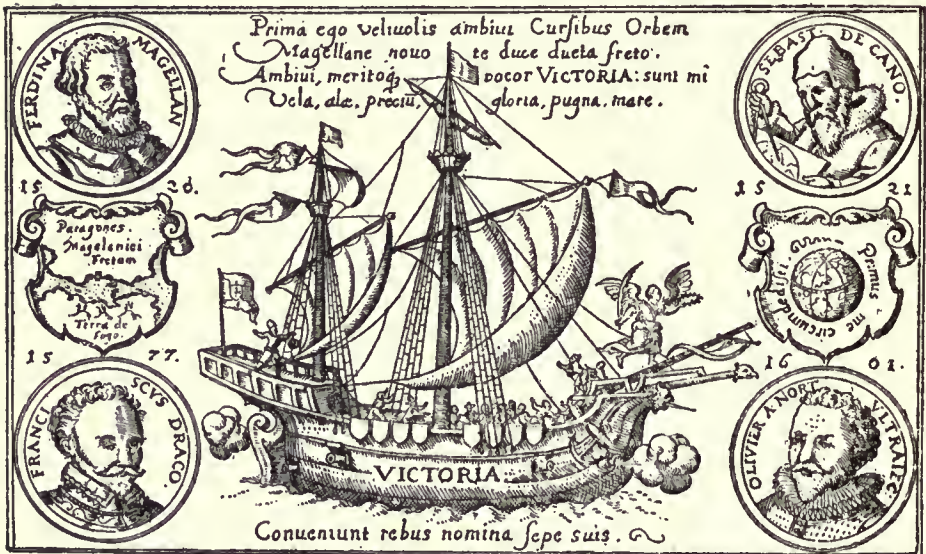 Prima ego veliuolis ambiui Cursibus Orbem
Magellane nouo te duce ducta freto.
Ambiui, meritoq₃ vocor VICTORIA: sunt mî
Vela, alæ, preciū, gloria, pugna, mare.
FERDINA MAGELAN
SEBAST. DE CANO.
15 20.
15 21
Patagones.
Magelenici
Fretum
Terra de
fogo.
Primus me circumdedisti.
15 77.
16 01.
FRANCISCVS DRACO.
OLIVIER A NORT VLTRAIEC
VICTORIA:
Conueniunt rebus nomina sepe suis.